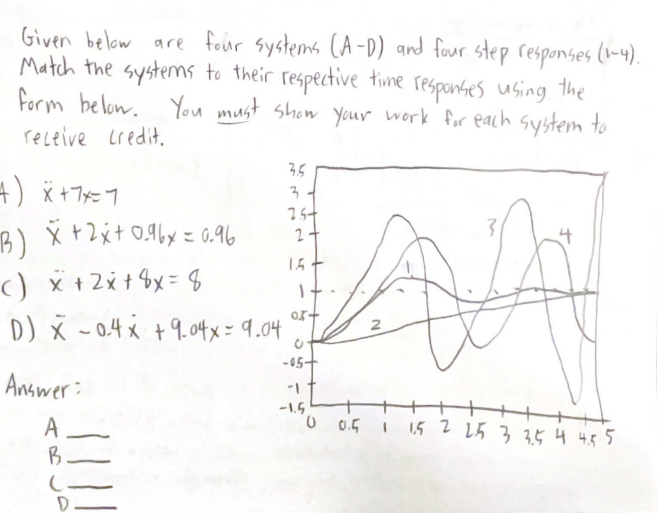 Given below are four systems (A-D) and four step responses (1-4).
Match the systems to their respective time responses using the
form below. You must show your work for each system to
receive credit.
A) ẍ + 7x = 7
B) ẍ + 2ẋ + 0.96x = 0.96
C) ẍ + 2ẋ + 8x = 8
D) ẍ - 0.4ẋ + 9.04x = 9.04
3.5
3
2.5
2
1.5
1
0.5
0
-0.5
-1
-1.5
1
2
3
4
0 0.5 1 1.5 2 2.5 3 3.5 4 4.5 5
Answer:
A __
B __
C __
D __